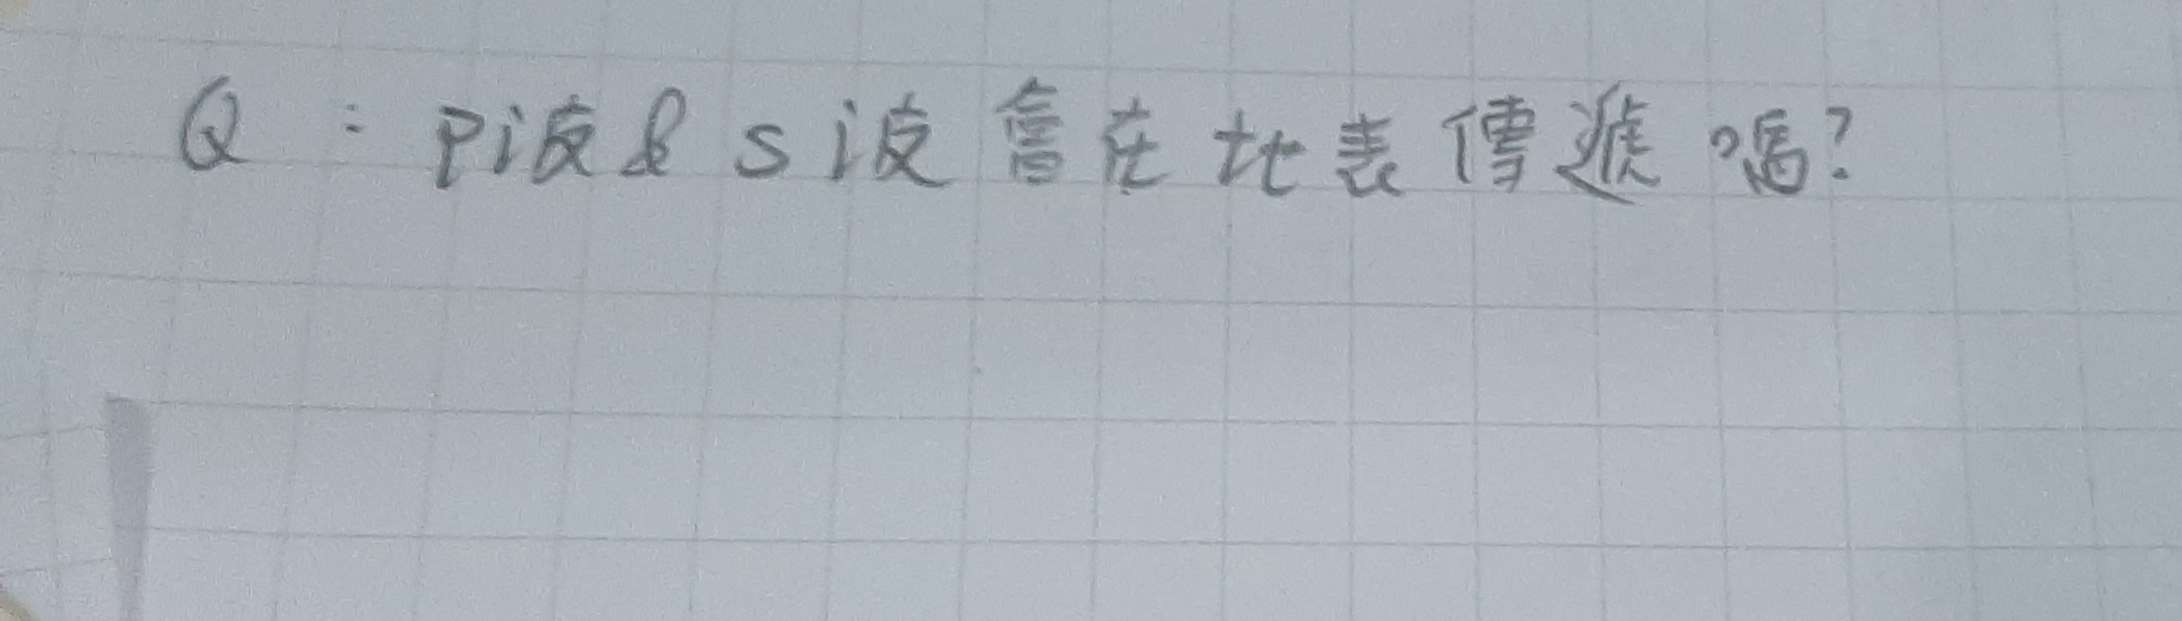 Q：P波&S波會在地表傳遞嗎？